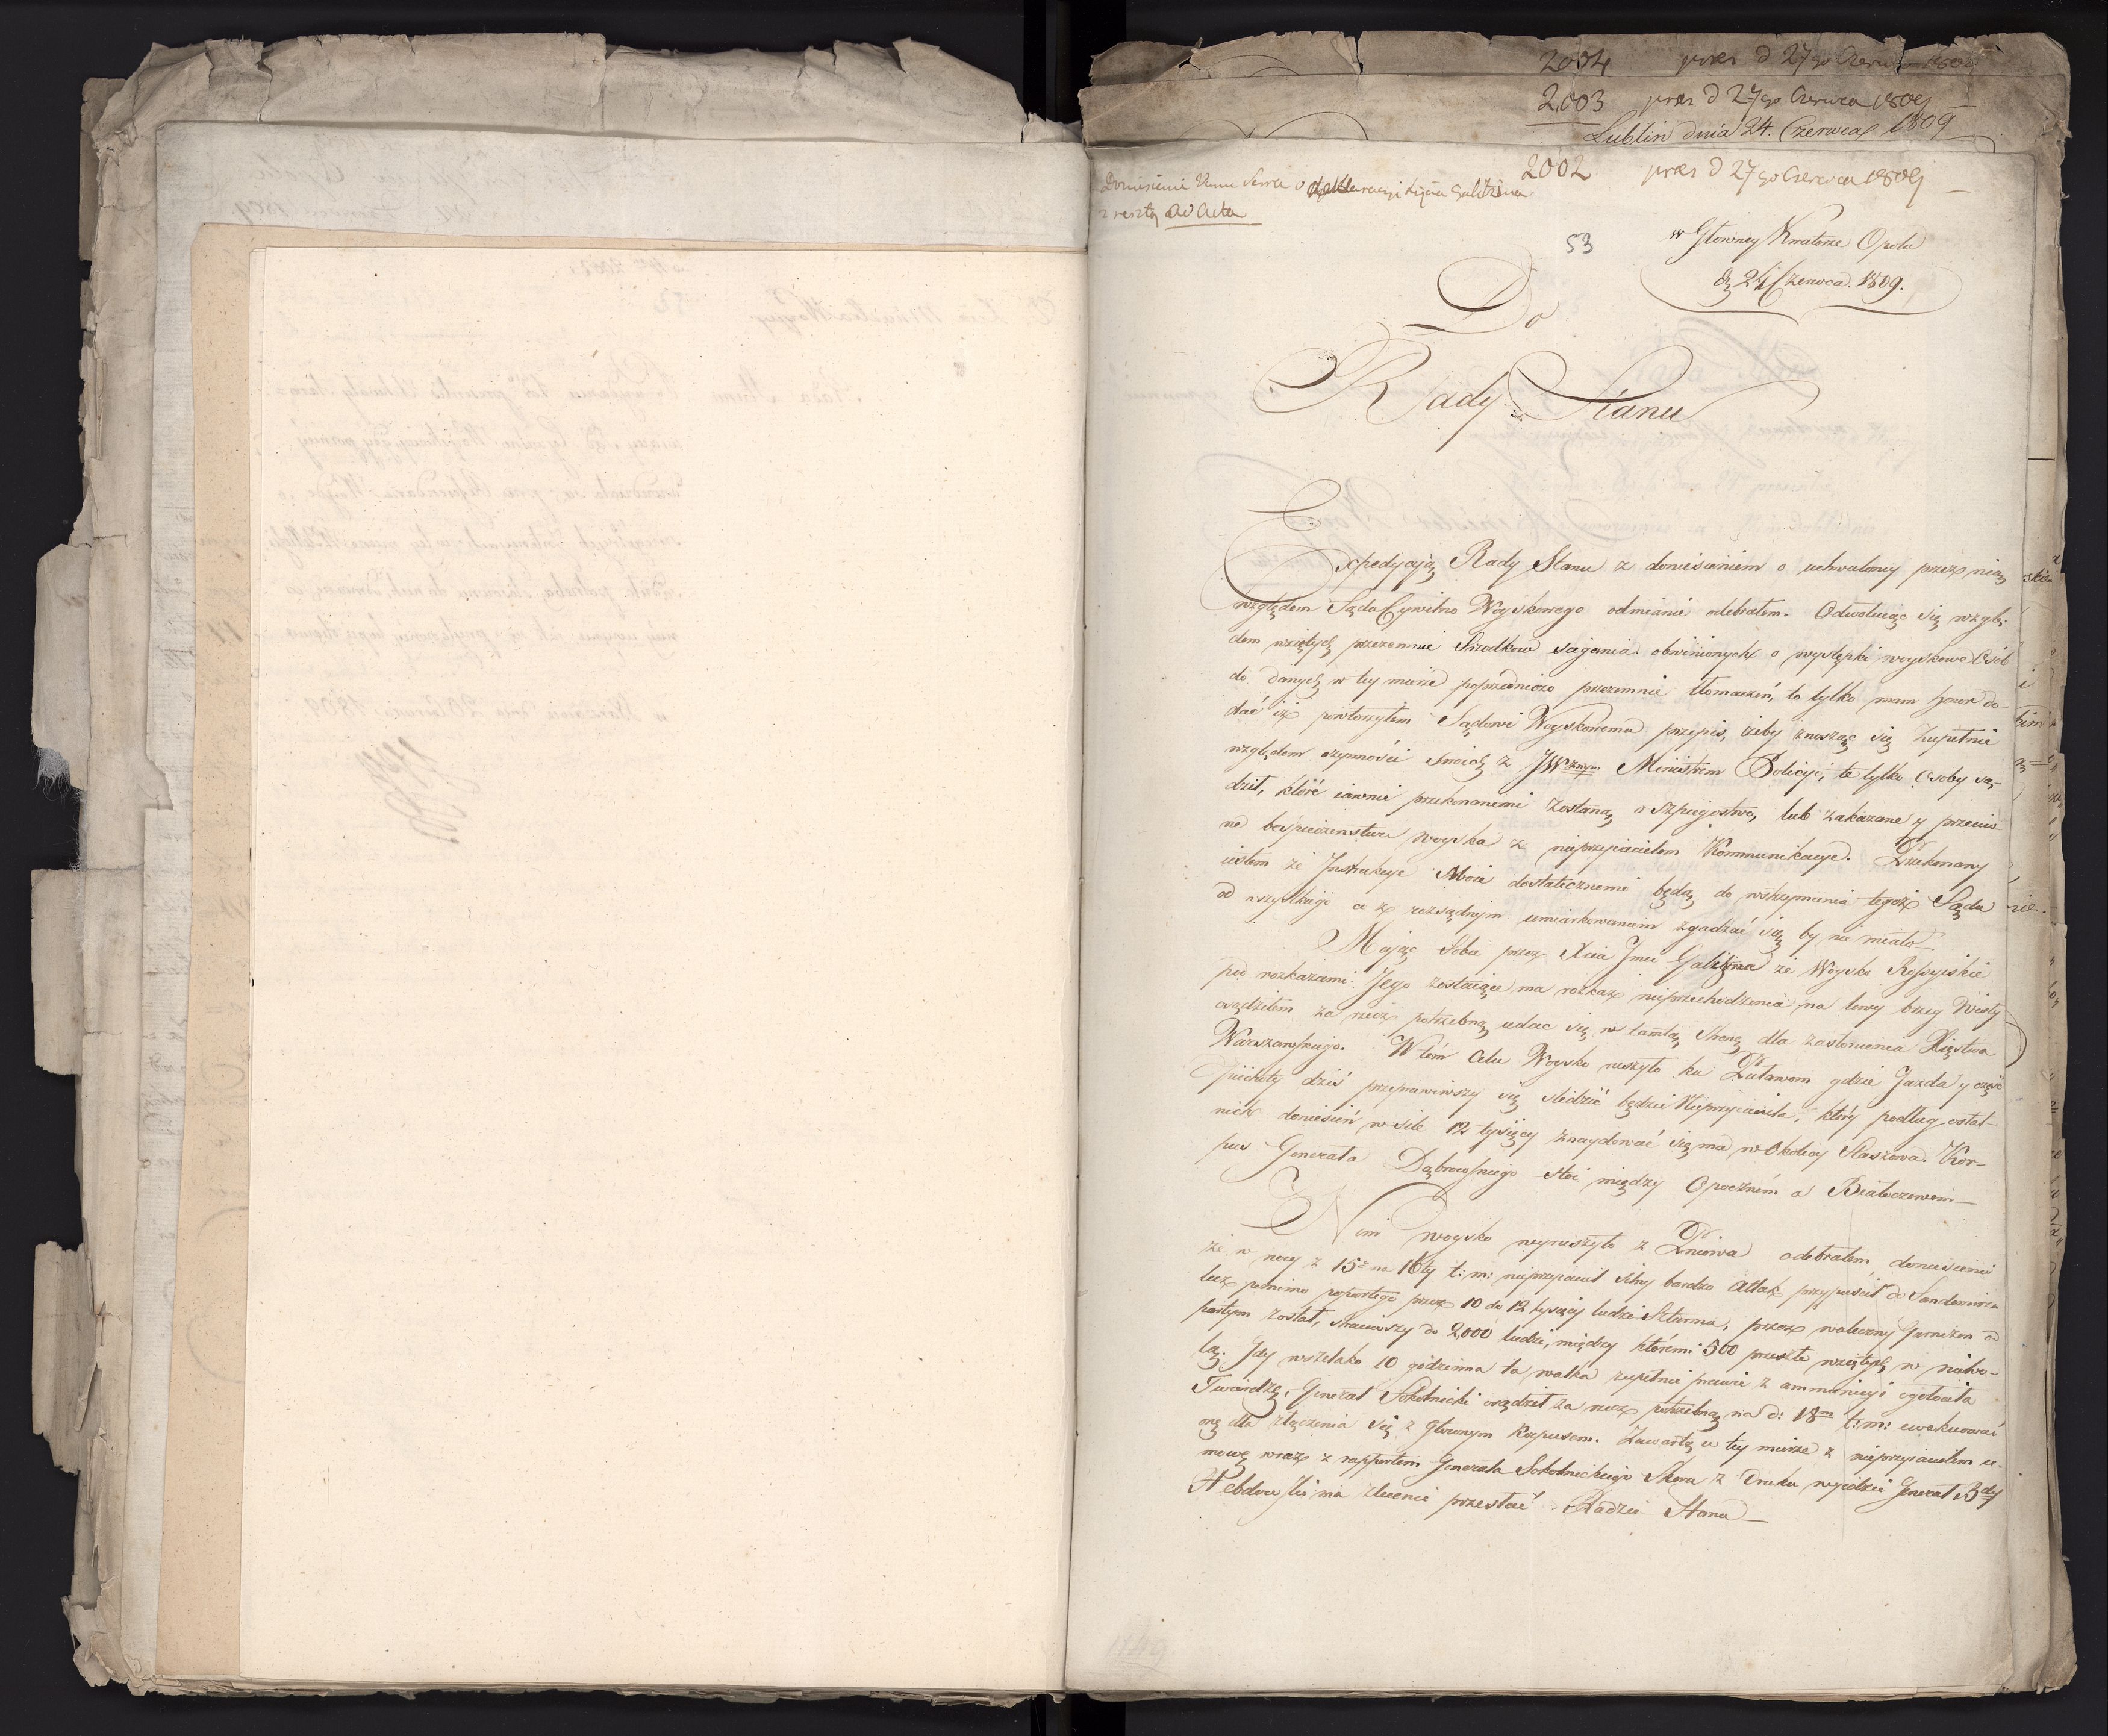 2004 præs d 27go Czerwca 1809
2003 præs d 27go Czerwca 1809
Lublin dnia 24. Czerwca 1809
2002 præs d 27go Czerwca 1809
Doniesienie Panu Serra o deklaracyi Xięcia Galitzina
z resztą ad Acta
53
w Głowney Kwaterze Opolu
d. 24 Czerwca. 1809.
Do
Rady Stanu
Expedycyją Rady Stanu z doniesieniem o uchwaloney przez nią
względem Sądu Cywilno Woyskowego odmianie odebrałem. Odwołuiąc się wzglę-
dem wziętych przezemnie Srzodkow scigania obwinionych o występki woyskowe Osób
do danych w tey mierze poprzedniczo przezemnie tłomaczeń, to tylko mam honor do-
dać iż powtorzyłem Sądowi Woyskowemu przepis, iżby znosząc się zupełnie
względem czynności swoich z JWznym Ministrem Policyi, te tylko Osoby są-
dził, które iawnie przekonanemi zostaną o szpiegostwo, lub zakazane y przeciw-
ne bespieczenstwu woyska z nieprzyiacielem Kommunikacye. Przekonany
iestem że Instrukcye Moie dostatecznemi będą do wstrzymania tegoż Sądu
od wszystkiego co z rozsądnym umiarkowaniem zgadzać się by nie miało
Maiąc Sobie przez Xcia Jmci Galitzina że Woysko Rossyiskie
pod rozkazami Jego zostaiące ma rozkaz nieprzechodzenia na lewy brzeg Wisły
osądziłem za rzecz potrzebną udać się w tamtą stronę dla zasłonienia Xięstwa
Warszawskiego. W tém Celu Woysko ruszyło ku Puławom gdzie Jazda y część
piechoty dziś przeprawiwszy się śledzić będzie Nieprzyiaciela, który podług ostat-
nich doniesień w sile 12 tysięcy znaydować się ma w Okolicy Staszowa. Kor-
pus Generała Dąbrowskiego stoi między Opocznem a Białaczewem
Nim woysko wyruszyło z Pniowa odebrałem doniesienie
że w nocy z 15o na 16ty t: m: nieprzyiaciel silny bardzo Attak przypuścił do Sandomirza
lecz pomimo popartego przez 10 do 12 tysięcy ludzi Szturmu, przez waleczny Garnizon od
partym został, straciwszy do 2,000 ludzi, między któremi 500 przeszło wziętych w niewo-
lą. Gdy wszelako 10 godzinna ta walka zupełnie prawie z ammunicyi ogołociła
Twierdzę, Generał Sokolnicki osądził za rzecz potrzebną na d: 18m t: m: ewakuować
onę dla złączenia się z głownym Korpusem. Zawartą w tey mierze z nieprzyiacielem u-
mowę wraz z rapportem Generała Sokolnickiego skoro z Druku wyidzie Generał Bdy
Hebdowski ma zlecenie przesłać Radzie Stanu